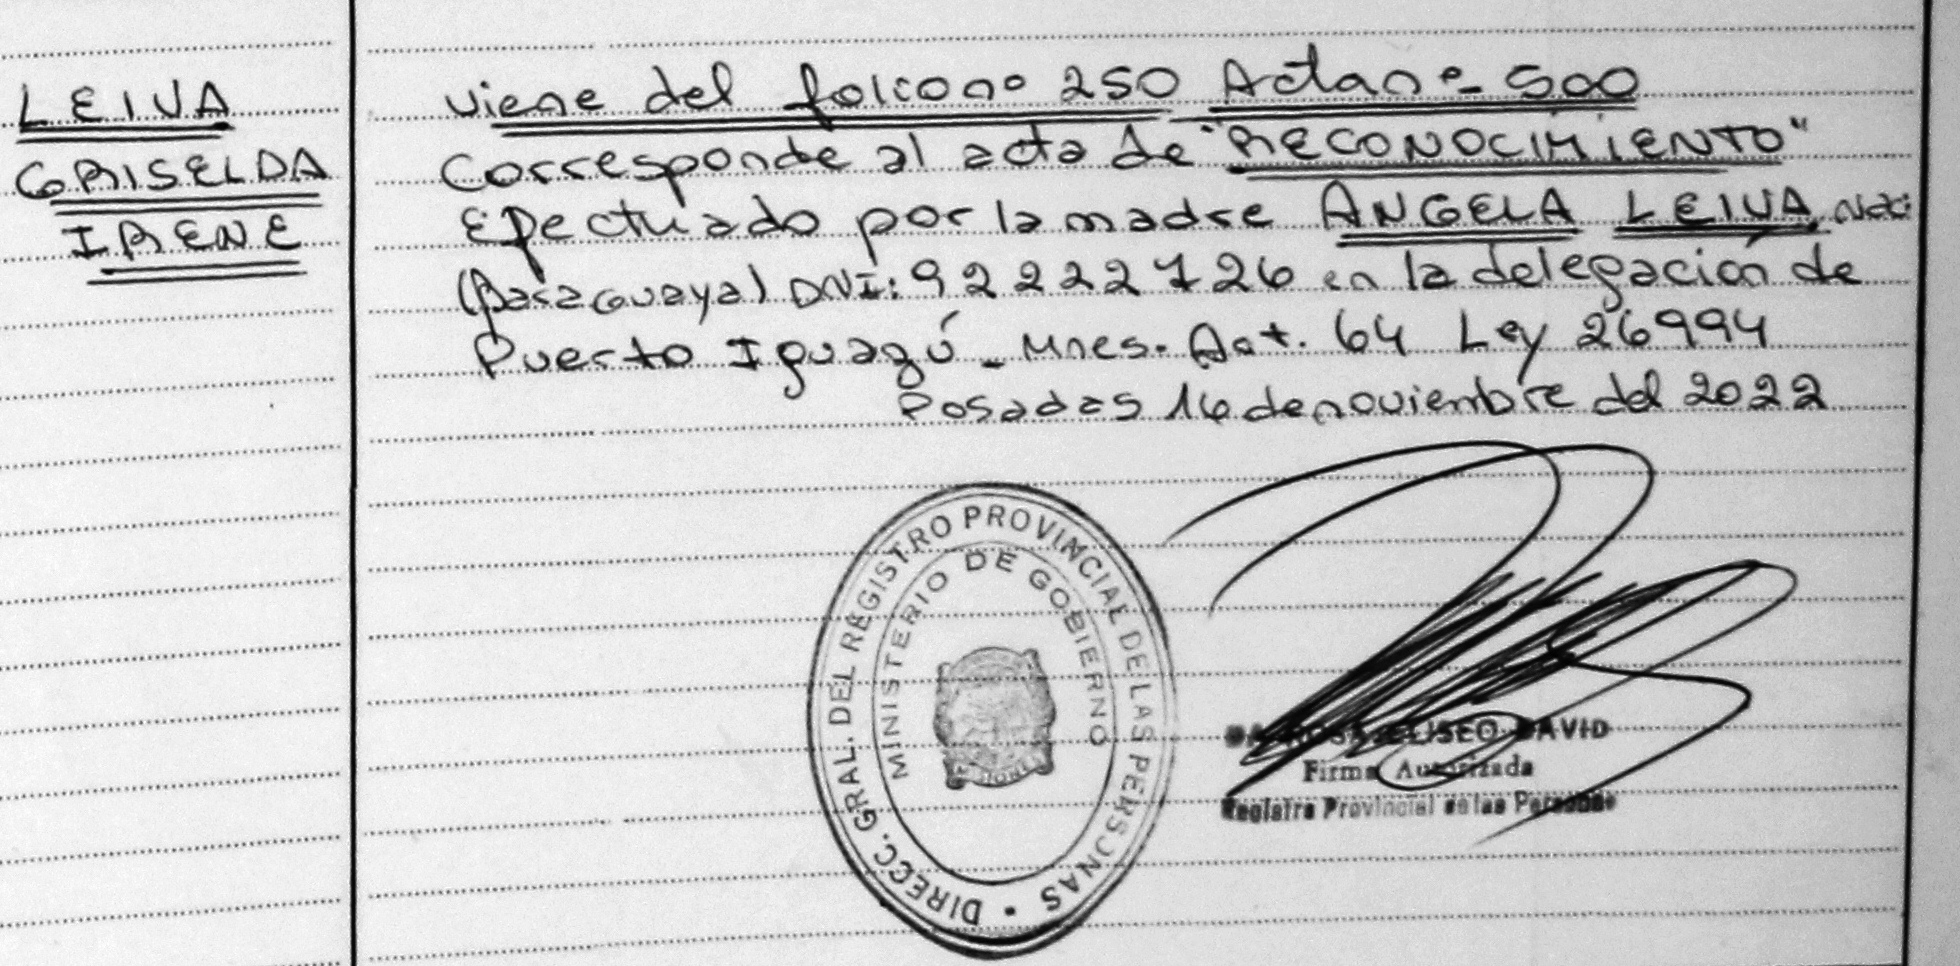 LEIVA
GRISELDA
IRENE
viene del folio nº 250 Acta nº 500
Corresponde al acta de "RECONOCIMIENTO"
Efectuado por la madre ANGELA LEIVA, Nac:
(Paraguaya) DNI: 92222726 en la delegación de
Puerto Iguazú - Mnes. Art. 64 Ley 26994
Posadas 16 de noviembre del 2022
DIRECC. GRAL. DEL REGISTRO PROVINCIAL DE LAS PERSONAS
MINISTERIO DE GOBIERNO
MISIONES
ELISEO DAVID
Firma Autorizada
Registro Provincial de las Personas